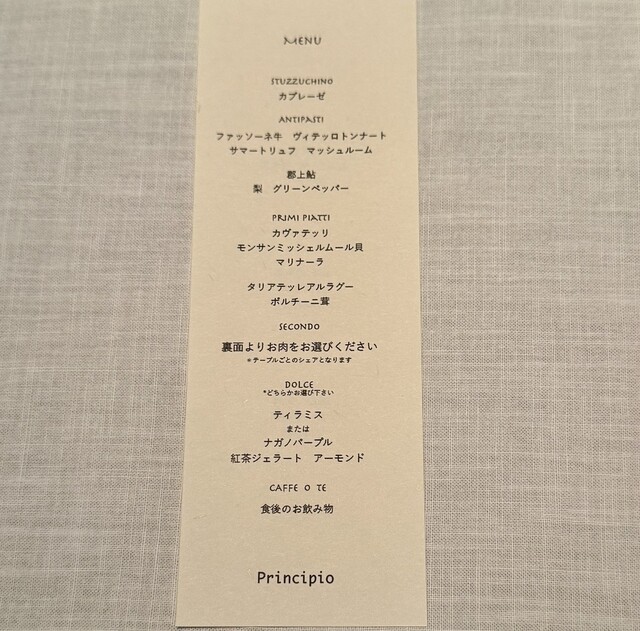 MENU
STUZZUCHINO
カプレーゼ
ANTIPASTI
ファッソーネ牛　ヴィテッロトンナート
サマートリュフ　マッシュルーム
郡上鮎
梨　グリーンペッパー
PRIMI PIATTI
カヴァテッリ
モンサンミッシェルムール貝
マリナーラ
タリアテッレアルラグー
ポルチーニ茸
SECONDO
裏面よりお肉をお選びください
*テーブルごとのシェアとなります
DOLCE
*どちらかお選び下さい
ティラミス
または
ナガノパープル
紅茶ジェラート　アーモンド
CAFFE O TE
食後のお飲み物
Principio